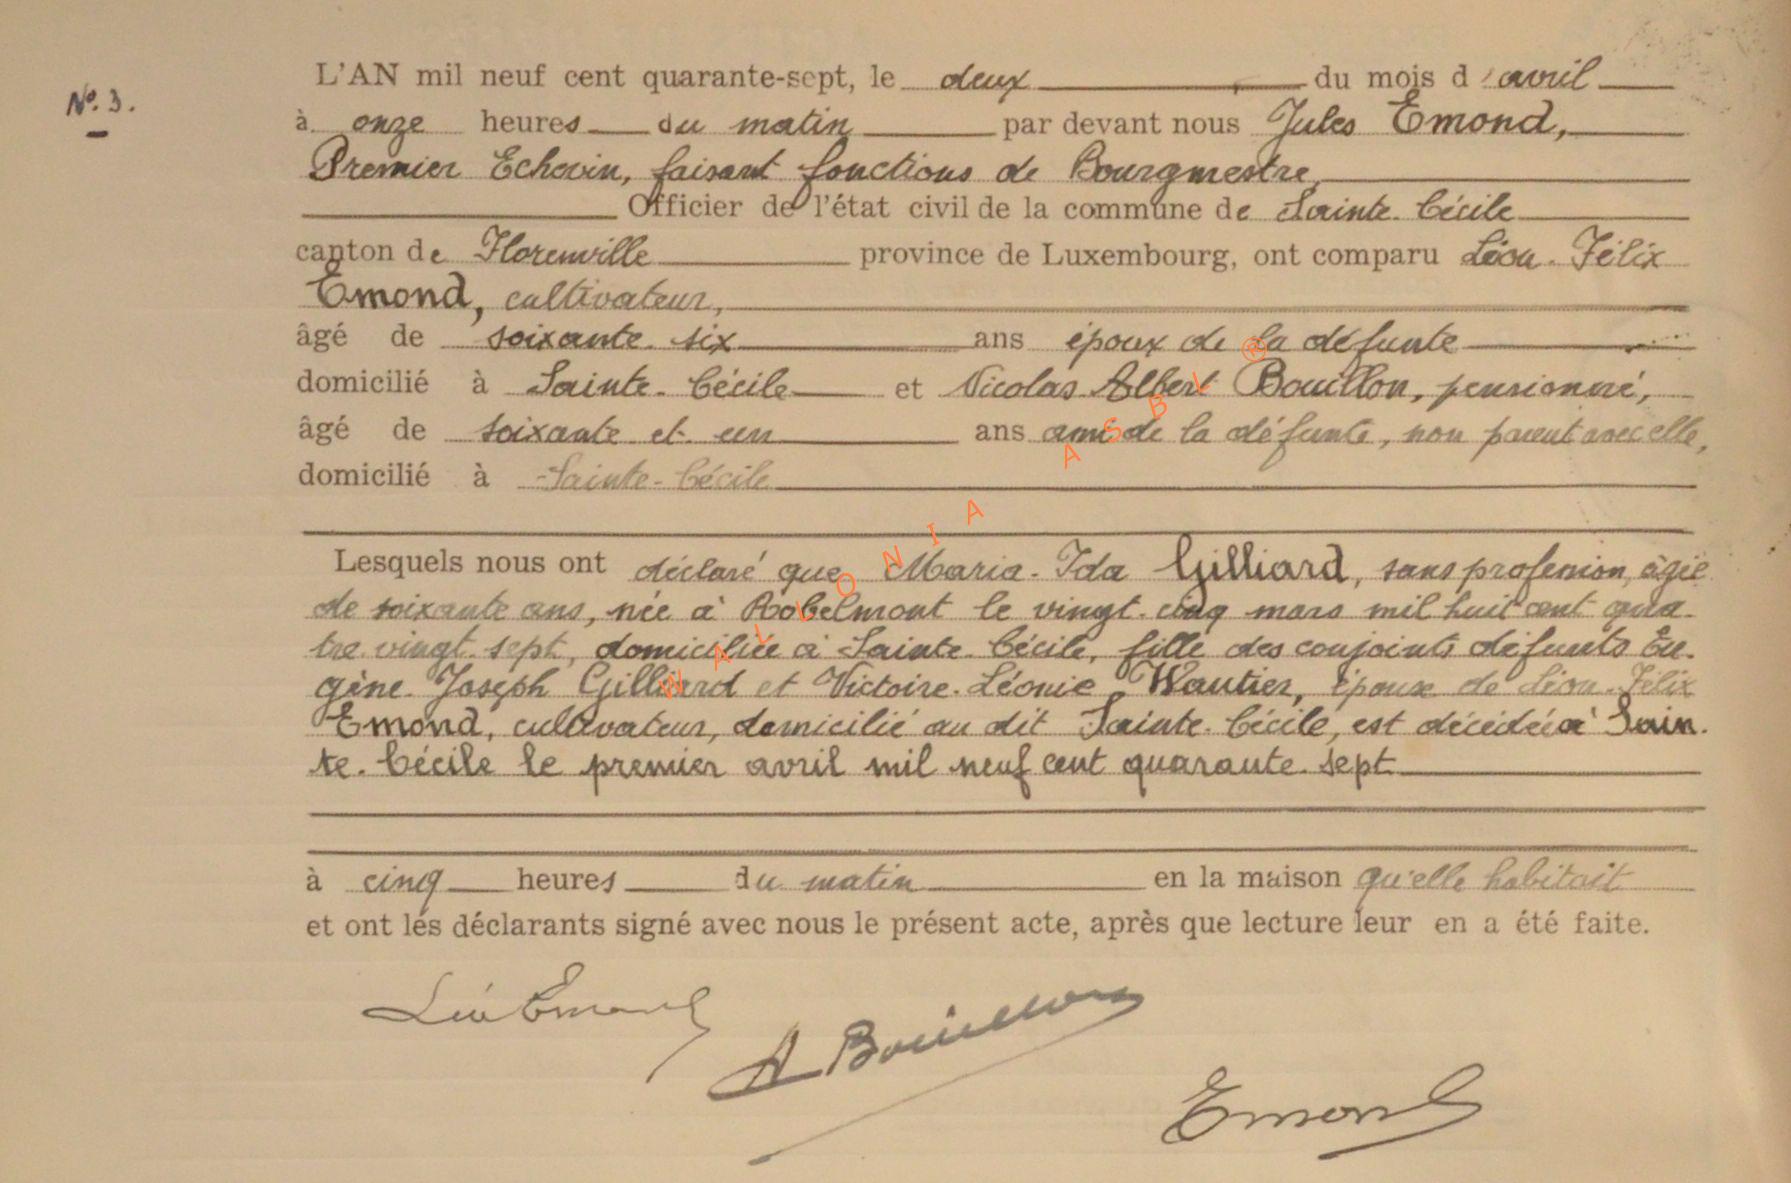 N° 3.
L'AN mil neuf cent quarante-sept, le deux du mois d'avril
à onze heures du matin par devant nous Jules Emond,
Premier Echevin, faisant fonctions de Bourgmestre,
Officier de l'état civil de la commune de Sainte-Cécile
canton de Florenville province de Luxembourg, ont comparu Léon-Félix
Emond, cultivateur,
âgé de soixante-six ans époux de la défunte
domicilié à Sainte-Cécile et Nicolas Albert Bouillon, pensionné,
âgé de soixante et un ans ami de la défunte, non parent avec elle,
domicilié à Sainte-Cécile
Lesquels nous ont déclaré que Maria-Ida Gilliard, sans profession, âgée
de soixante ans, née à Robelmont le vingt-cinq mars mil huit cent qua-
tre vingt-sept, domiciliée à Sainte-Cécile, fille des conjoints défunts Eu-
gène-Joseph Gilliard et Victoire-Léonie Wautier, épouse de Léon-Félix
Emond, cultivateur, domicilié au dit Sainte-Cécile, est décédée à Sain-
te-Cécile le premier avril mil neuf cent quarante-sept
à cinq heures du matin en la maison qu'elle habitait
et ont les déclarants signé avec nous le présent acte, après que lecture leur en a été faite.
Léon Emond
A Bouillon
Emond
WALLONIA ASBL ®